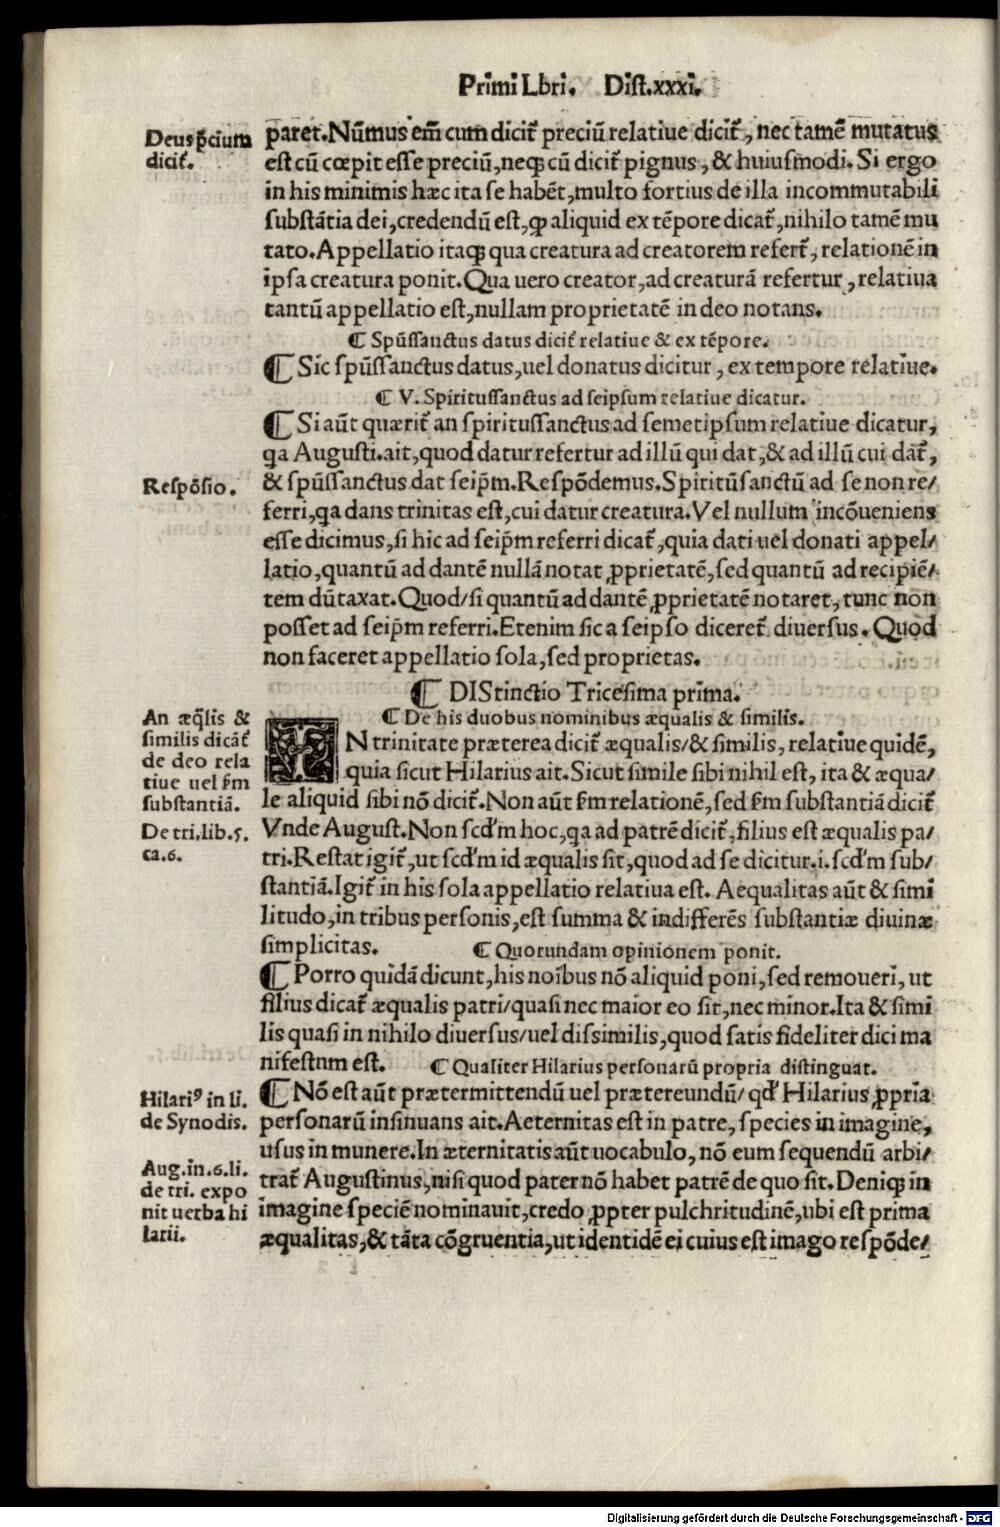 Primi Lbri. Dist.xxxi.
Deus p̃cium
dicit̃.
paret.Nũmus em̃ cum dicit̃ preciũ relatiue dicit̃, nec tamẽ mutatus
est cũ cœpit esse preciũ,neqꝫ cũ dicit̃ pignus, & huiusmodi. Si ergo
in his minimis hæc ita se habẽt,multo fortius de illa incommutabili
substãtia dei,credendũ est,ꝙ aliquid ex tẽpore dicat̃,nihilo tamẽ mu
tato.Appellatio itaqꝫ qua creatura ad creatorem refert̃, relationẽ in
ipsa creatura ponit.Qua uero creator,ad creaturã refertur, relatiua
tantũ appellatio est,nullam proprietatẽ in deo notans.
¶ Spũssanctus datus dicit̃ relatiue & ex tẽpore.
¶ Sic spũssanctus datus,uel donatus dicitur, ex tempore relatiue.
¶ V. Spiritussanctus ad seipsum relatiue dicatur.
¶ Si aũt quærit̃ an spiritussanctus ad semetipsum relatiue dicatur,
qa Augusti.ait,quod datur refertur ad illũ qui dat,& ad illũ cui dat̃,
Respõsio.
& spũssanctus dat seip̃m.Respõdemus.Spiritũsanctũ ad se non re/
ferri,qa dans trinitas est,cui datur creatura.Vel nullum incõueniens
esse dicimus,si hic ad seip̃m referri dicat̃,quia dati uel donati appel/
latio,quantũ ad dantẽ nullã notat ꝓprietatẽ,sed quantũ ad recipiẽ/
tem dũtaxat.Quod/si quantũ ad dantẽ ꝓprietatẽ notaret, tunc non
posset ad seip̃m referri.Etenim sic a seipso diceret̃ diuersus. Quod
non faceret appellatio sola,sed proprietas.
¶ DIStinctio Tricesima prima.
An æq̃lis &
similis dicãt̃
de deo rela
tiue uel s̃m
substantiã.
¶ De his duobus nominibus æqualis & similis.
IN trinitate præterea dicit̃ æqualis/& similis, relatiue quidẽ,
quia sicut Hilarius ait.Sicut simile sibi nihil est, ita & æqua/
le aliquid sibi nõ dicit̃.Non aũt s̃m relationẽ,sed s̃m substantiã dicit̃
De tri,lib.5.
ca.6.
Vnde August.Non scd'm hoc,qa ad patrẽ dicit̃,filius est æqualis pa/
tri.Restat igit̃,ut scd'm id æqualis sit,quod ad se dicitur.i.scd'm sub/
stantiã.Igit̃ in his sola appellatio relatiua est. Aequalitas aũt & simi
litudo,in tribus personis,est summa & indifferẽs substantiæ diuinæ
simplicitas. ¶ Quorundam opinionem ponit.
¶ Porro quidã dicunt,his noĩbus nõ aliquid poni,sed remoueri, ut
filius dicat̃ æqualis patri/quasi nec maior eo sit,nec minor.Ita & simi
lis quasi in nihilo diuersus/uel dissimilis,quod satis fideliter dici ma
nifestnm est. ¶ Qualiter Hilarius personarũ propria distinguat.
Hilariꝰ in li.
de Synodis.
¶ Nõ est aũt prætermittendũ uel prætereundũ/ qd' Hilarius ꝓpria
personarũ insinuans ait.Aeternitas est in patre, species in imagine,
usus in munere.In æternitatis aũt uocabulo, nõ eum sequendũ arbi/
Aug.in.6.li.
de tri. expo
nit uerba hi
larii.
trat̃ Augustinus,nisi quod pater nõ habet patrẽ de quo sit.Deniqꝫ in
imagine speciẽ nominauit,credo ꝓpter pulchritudinẽ,ubi est prima
æqualitas,& tãta cõgruentia,ut identidẽ ei cuius est imago respõde/
Digitalisierung gefördert durch die Deutsche Forschungsgemeinschaft - DFG